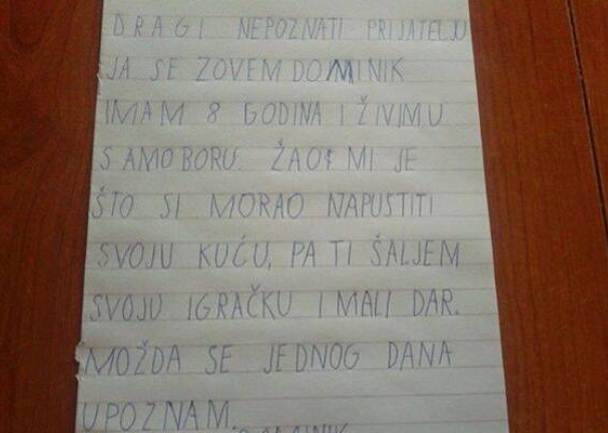 DRAGI NEPOZNATI PRIJATELJU
JA SE ZOVEM DOMINIK
IMAM 8 GODINA I ŽIVIM U
SAMOBORU. ŽAO MI JE
ŠTO SI MORAO NAPUSTITI
SVOJU KUĆU, PA TI ŠALJEM
SVOJU IGRAČKU I MALI DAR.
MOŽDA SE JEDNOG DANA
UPOZNAM.
DOMINIK